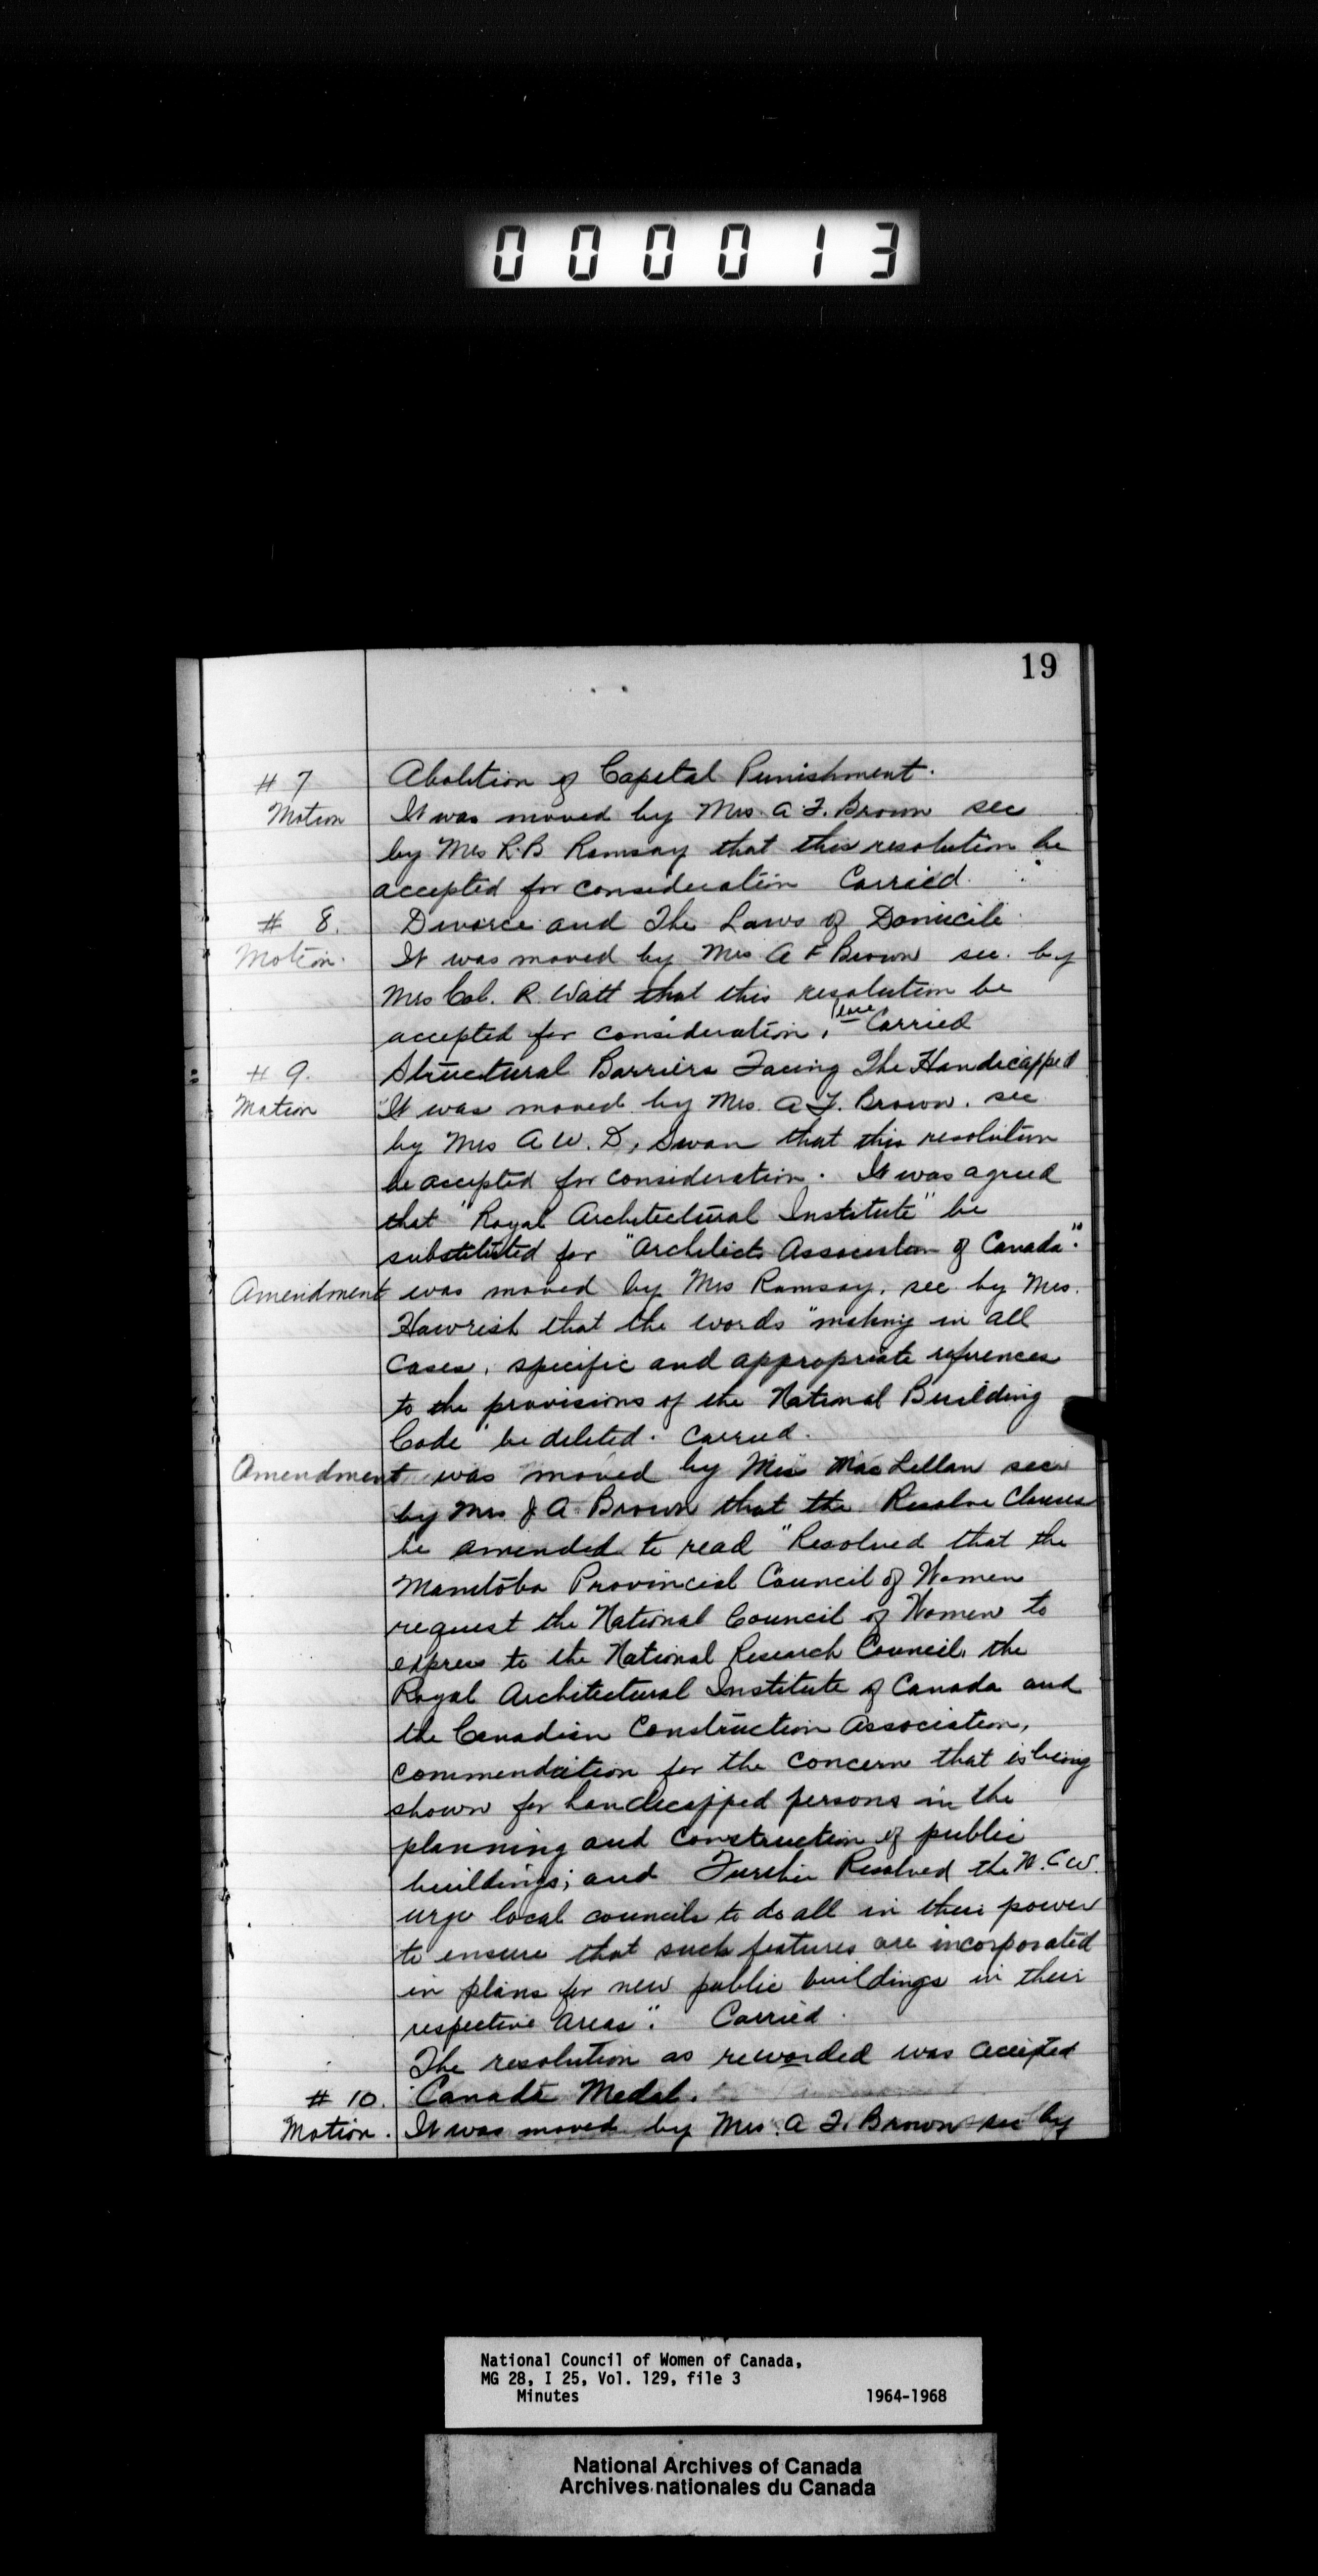 000013
19
# 7 Abolition of Capital Punishment.
Motion It was moved by Mrs. A. F. Brown sec
by Mrs R.B Ramsay that this resolution be
accepted for consideration Carried.
# 8. Divorce and The Laws of Domicile
Motion. It was moved by Mrs A F Brown sec. by
Mrs Col. R. Watt that this resolution be
accepted for consideration, Carried
# 9. Structural Barriers Facing The Handicapped
Motion It was moved by Mrs. A F. Brown. sec
by Mrs A W. D. Swan that this resolution
be accepted for consideration. It was agreed
that "Royal Architectural Institute" be
substituted for "Architects Association of Canada".
Amendment was moved by Mrs Ramsay, sec by Mrs.
Hawrish that the words "making in all
cases, specific and appropriate references
to the provisions of the National Building
Code" be deleted. Carried.
Amendment was moved by Miss MacLellan sec
by Mrs J A Brown that the Resolve Clauses
be amended to read "Resolved that the
Manitoba Provincial Council of Women
request the National Council of Women to
express to the National Research Council, the
Royal Architectural Institute of Canada and
the Canadian Construction Association,
commendation for the concern that is being
shown for handicapped persons in the
planning and construction of public
buildings; and Further Resolved the N.C.W.
urge local councils to do all in their power
to ensure that such features are incorporated
in plans for new public buildings in their
respective areas". Carried.
The resolution as reworded was accepted
# 10. Canada Medal.
Motion. It was moved by Mrs. A F. Brown sec by
National Council of Women of Canada,
MG 28, I 25, Vol. 129, file 3
Minutes 1964-1968
National Archives of Canada
Archives nationales du Canada